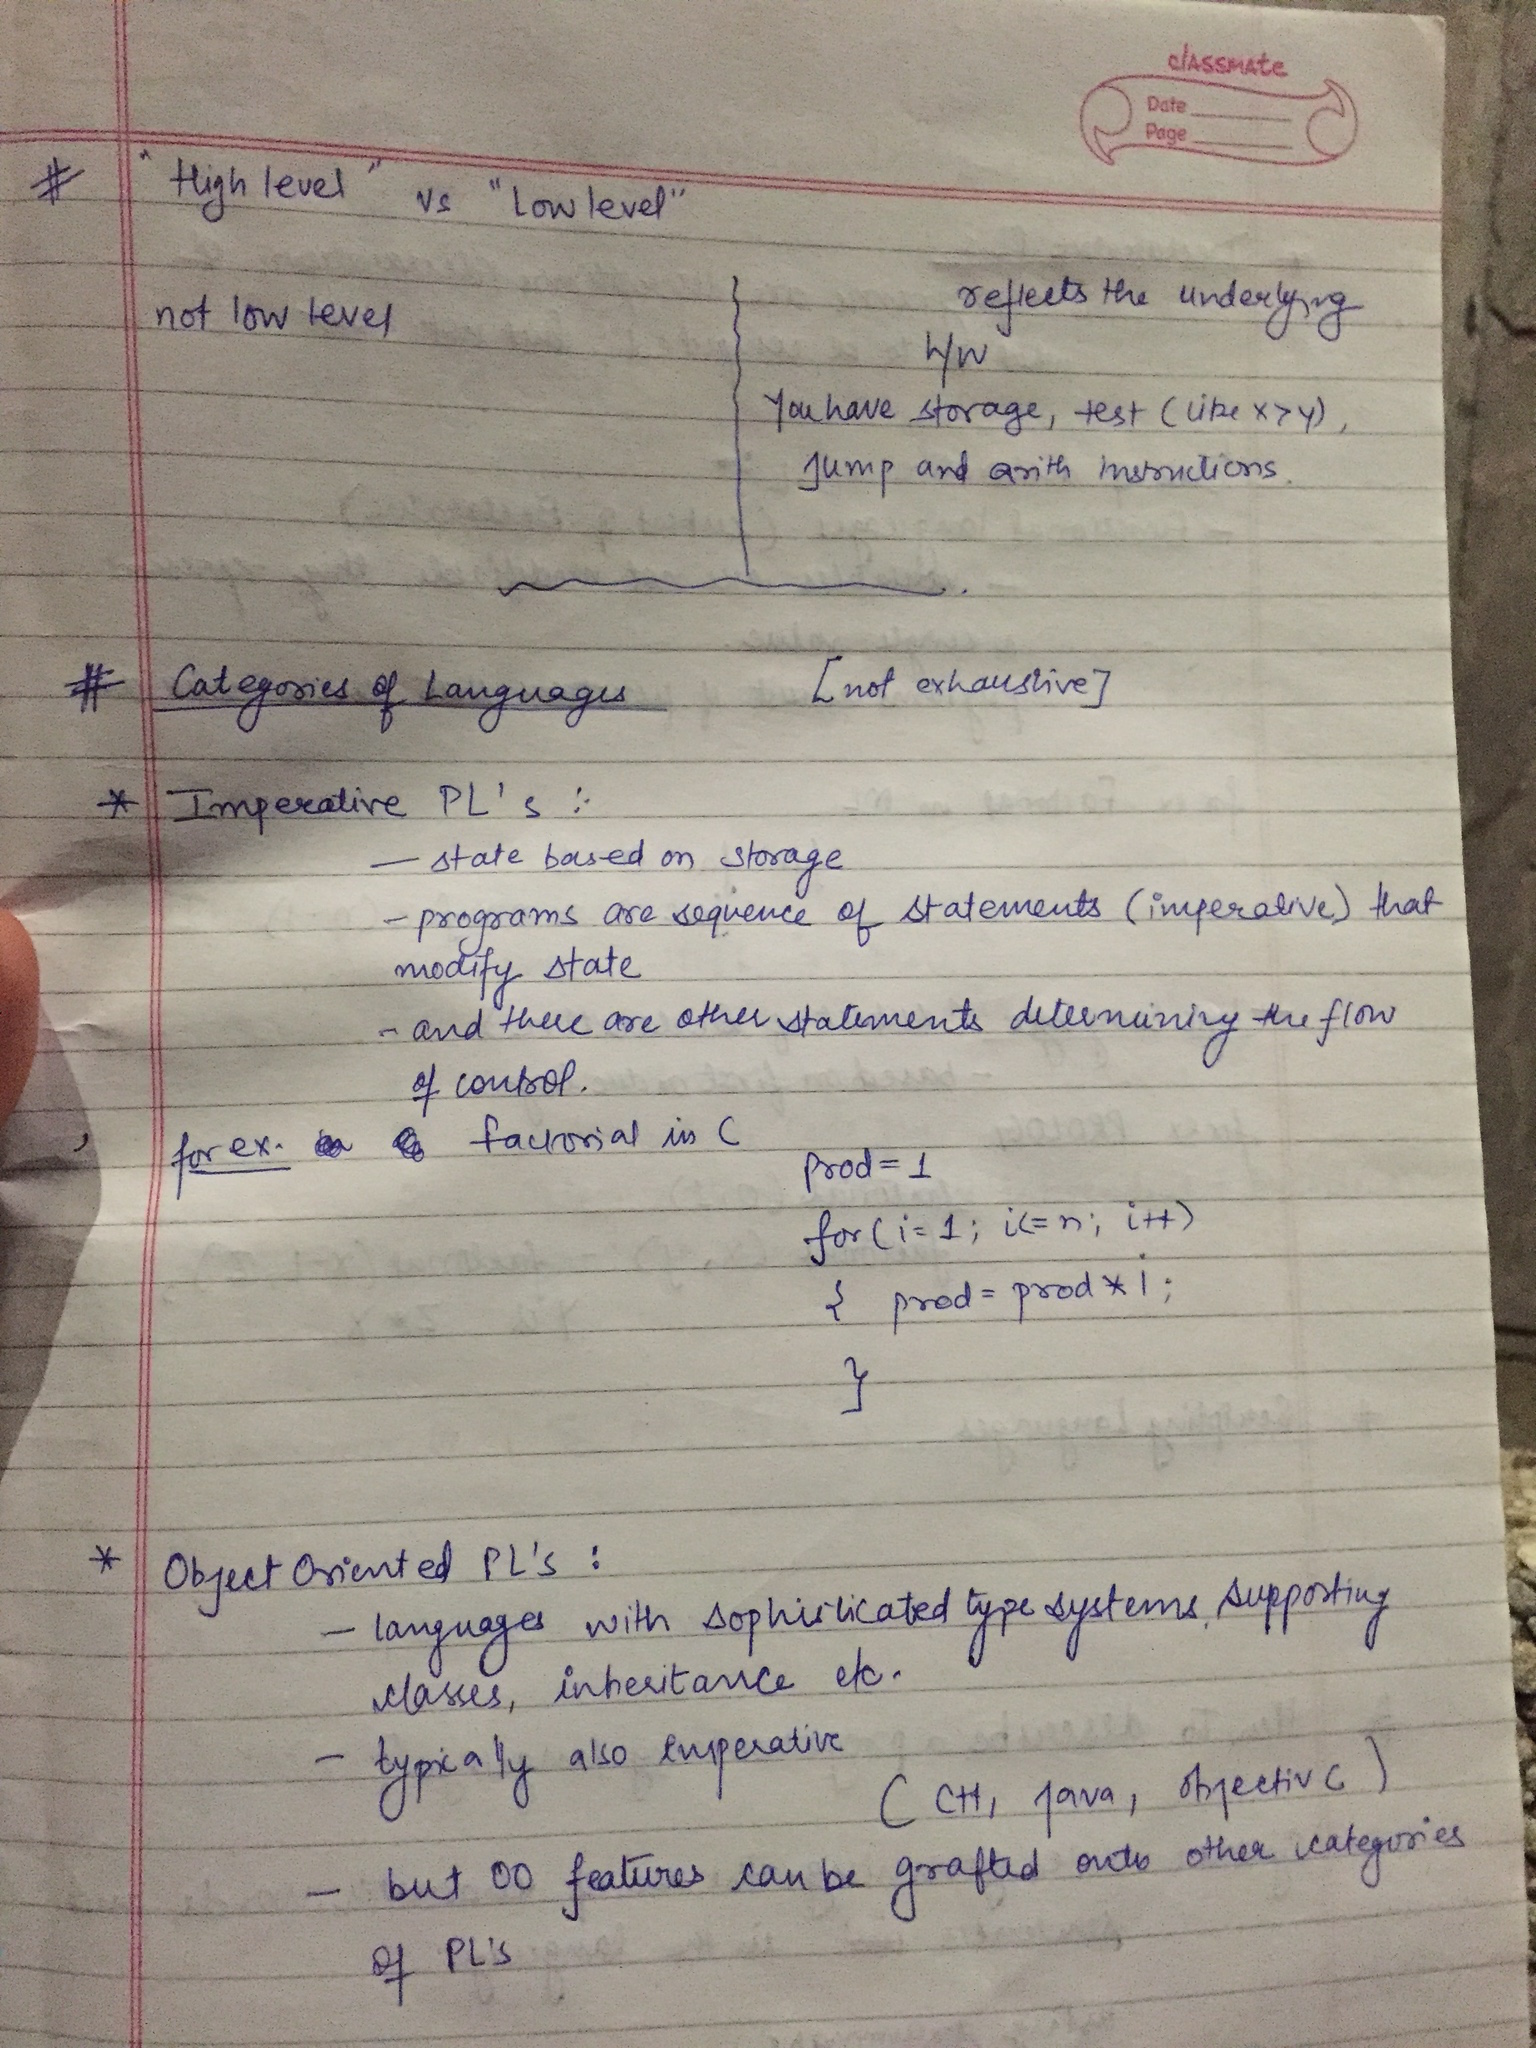 classmate
Date
Page
# "High level" vs "Low level"
not low level
reflects the underlying
h/w
You have storage, test (like x>y),
Jump and arith instructions.
# Categories of Languages [not exhaustive]
* Imperative PL's :-
— state based on storage
- programs are sequence of statements (imperative) that
modify state
- and there are other statements determining the flow
of control.
for ex. factorial in C
prod = 1
for(i=1; i<=n; i++)
{ prod = prod * i;
}
* Object Oriented PL's :
— languages with sophisticated type systems supporting
classes, inheritance etc.
- typically also imperative
( C++, java, objective C )
— but OO features can be grafted onto other categories
of PL's